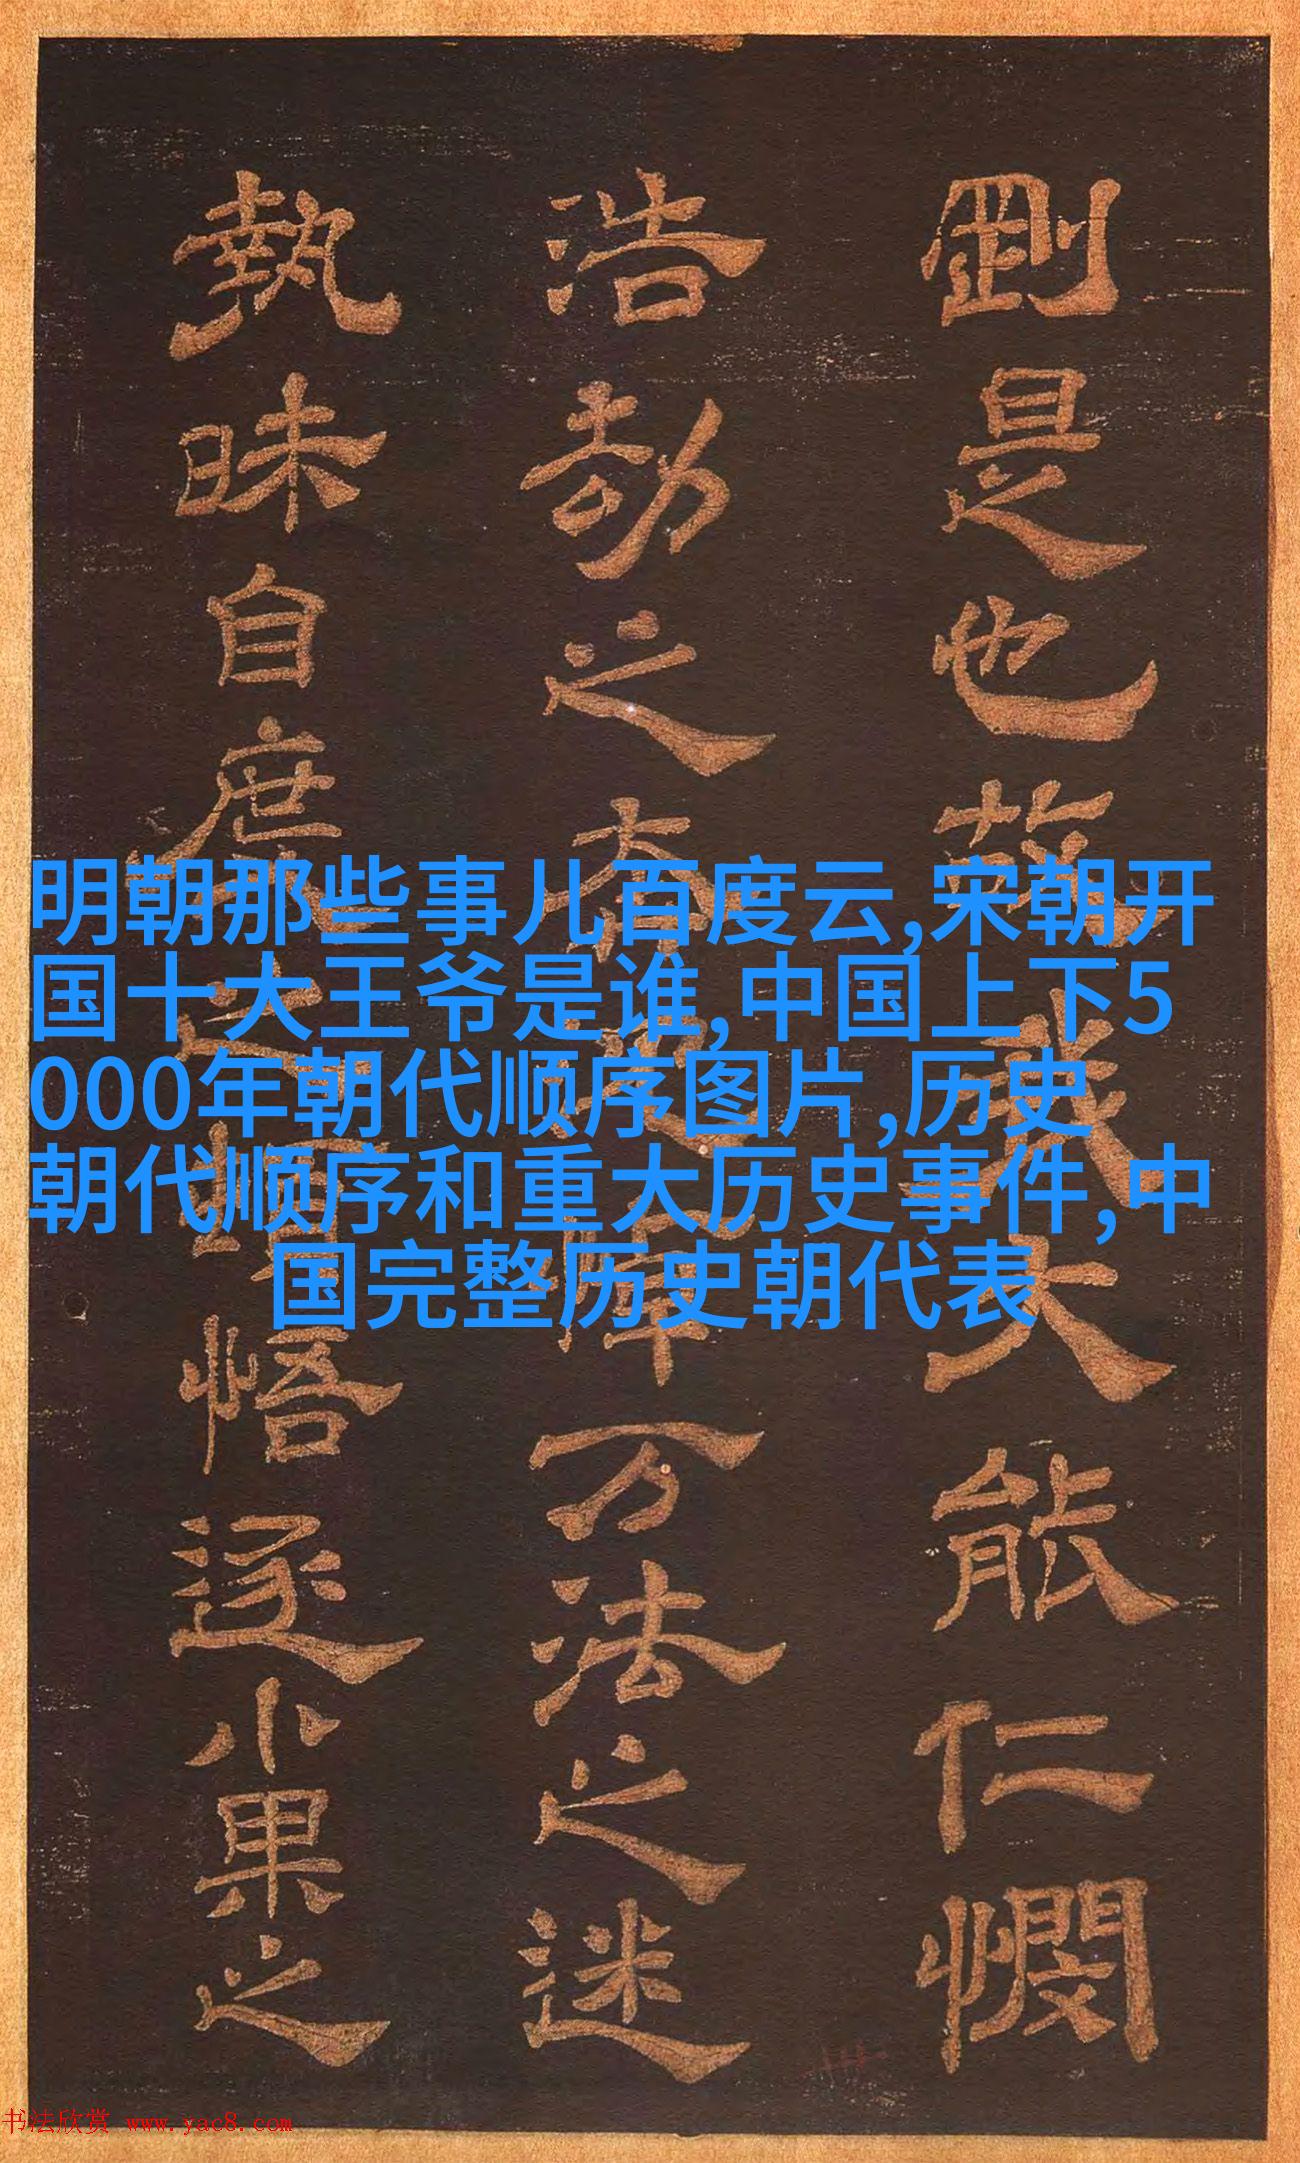 明朝那些事儿百度云,宋朝开
国十大王爷是谁,中国上下5
000年朝代顺序图片,历史
朝代顺序和重大历史事件,中
国完整历史朝代表
剛是也故 義大能仁憫
浩劫之
万法之迷
執昧自度
悟逐小果之
书法欣赏 www.yac8.com